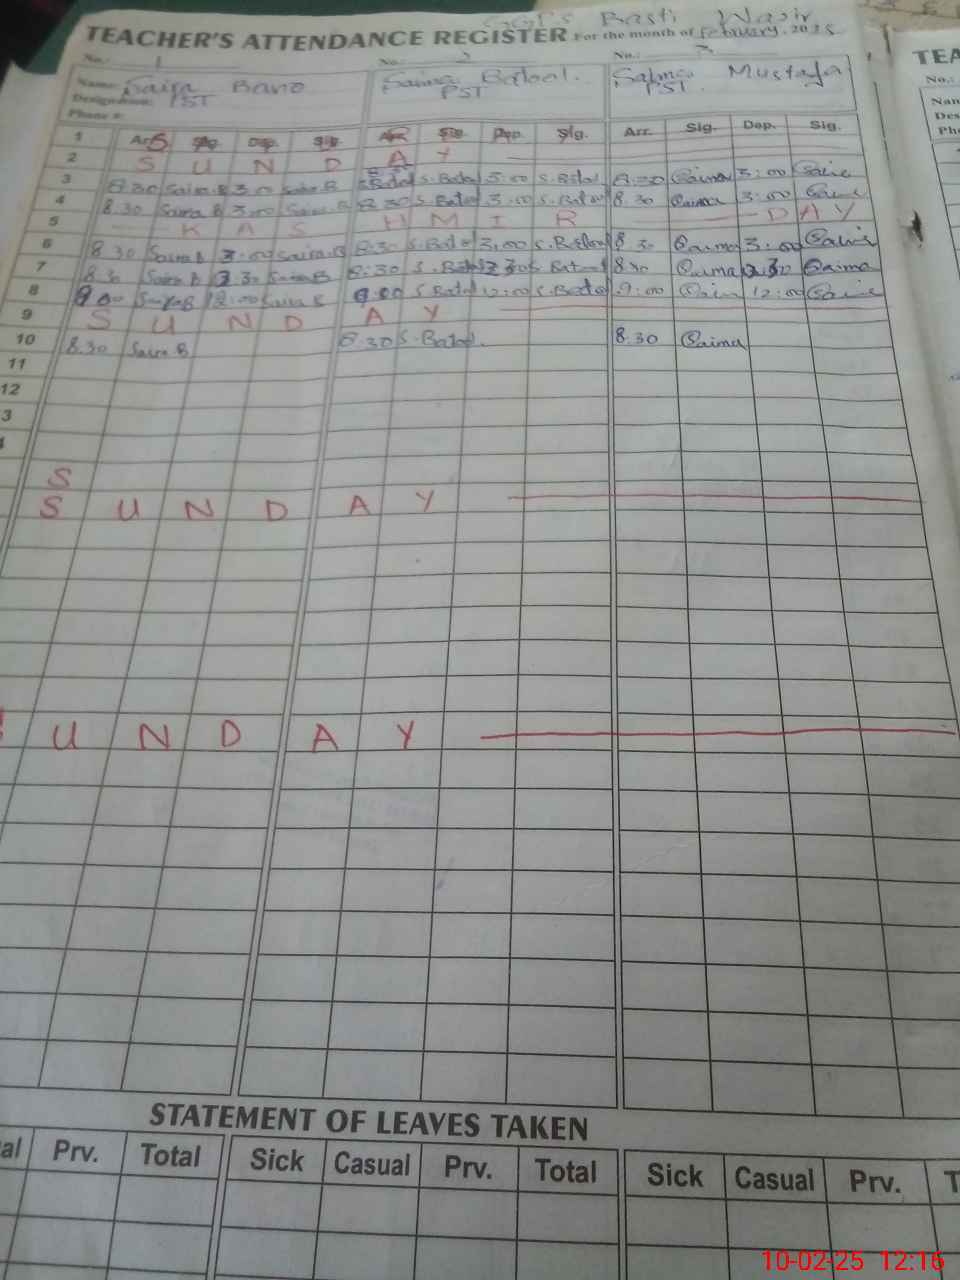 GGPS Basti Wasir
TEACHER'S ATTENDANCE REGISTER For the month of February, 2025
No.: 1 No.: 2 No.: 3
Name: Saira Bano Saima Batool. Salma Mustafa
Designation: PST PST PST.
Phone #:
1 Arr. Sig. Dep. Sig. Arr. Sig. Dep. Sig. Arr. Sig. Dep. Sig.
2 S U N D A Y
3 8.30 Saira.B 3.00 Saira B 8.30 S.Batol 3.00 S.Batol 8.30 Saima 3:00
4 8.30 Saira B 3.00 Saira.B 8.30 S.Batol 3.00 S.Batol 8.30 Saima 3:00
5 K A S H M I R D A Y
6 8.30 Saira B 3.00 Saira.B 8.30 S.Batol 3.00 S.Batol 8.30 Saima 3:00
7 8.30 Saira B 2.30 Saira B 8:30 S.Batol 2.30 S.Batol 8.30 Saima 2.30 Saima
8 9.00 Saira B 12.00 Saira B 9.00 S.Batol 12:00 S.Batol 9:00 12:00
9 S U N D A Y
10 8.30 Saira B 8.30 S.Batol. 8.30 Saima
11
12
3
4
S
S U N D A Y
U N D A Y
STATEMENT OF LEAVES TAKEN
al Prv. Total Sick Casual Prv. Total Sick Casual Prv. T
TEA
No.:
Nam
Des
Pho
10-02-25 12:16